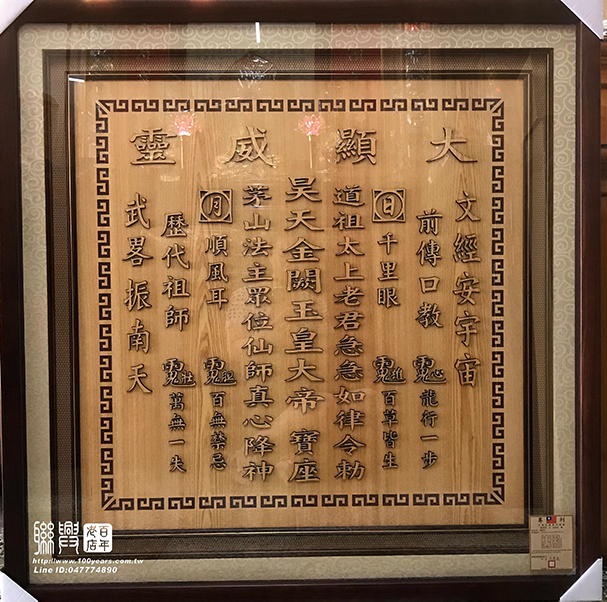 大顯威靈
文經安宇宙
前傳口教 龍行一步
日 千里眼 百草皆生
道祖太上老君急急如律令勅
昊天金闕玉皇大帝 寶座
茅山法主眾位仙師真心降神
月 順風耳 百無禁忌
歷代祖師 萬無一失
武畧振南天
聯興 百年老店
http://www.100years.com.tw
Line ID:047774890